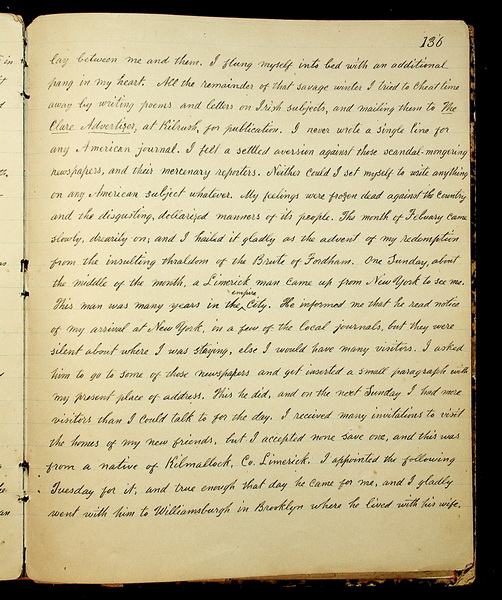 136
lay between me and them. I flung myself into bed with an additional
pang in my heart. All the remainder of that savage winter I tried to cheat time
away by writing poems and letters on Irish subjects, and mailing them to The
Clare Advertizer, at Kilrush, for publication. I never wrote a single line for
any American journal. I felt a settled aversion against those scandal-mongering
newspapers, and their mercenary reporters. Neither could I set myself to write anything
on any American subject whatever. My feelings were frozen dead against the country
and the disgusting, dollarized manners of its people. The month of Febuary came
slowly, drearily on; and I hailed it gladly as the advent of my redemption
from the insulting thraldom of the Brute of Fordham. One Sunday, about
the middle of the month, a Limerick man came up from New York to see me.
This man was many years in the empire City. He informed me that he read notice
of my arrival at New York, in a few of the local journals, but they were
silent about where I was staying, else I would have many visitors. I asked
him to go to some of those newspapers and get inserted a small paragraph with
my present place of address. This he did, and on the next Sunday I had more
visitors than I could talk to for the day. I received many invitations to visit
the homes of my new friends, but I accepted none save one, and this was
from a native of Kilmallock, Co. Limerick. I appointed the following
Tuesday for it, and true enough that day he came for me, and I gladly
went with him to Williamsburgh in Brooklyn where he lived with his wife.